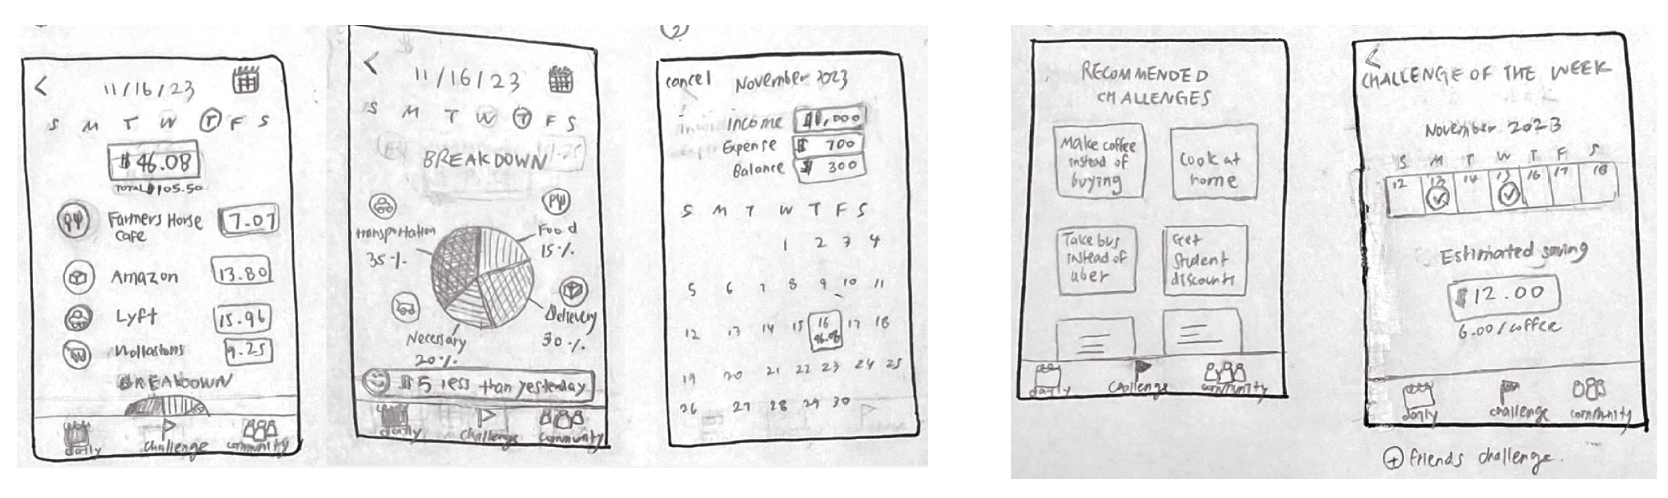 <
11/16/23
S M T W T F S
$46.08
TOTAL $105.50
Farmers Horse
Cafe
7.07
Amazon
13.80
Lyft
15.96
Wollastons
9.25
BREAKDOWN
daily
challenge
community
<
11/16/23
S M T W T F S
BREAKDOWN
transportation
35%
Food
15%
Delivery
30%
Necessary
20%
$5 less than yesterday
daily
challenge
community
2
cancel
November 2023
Income $1,000
Expense $ 700
Balance $ 300
S M T W T F S
1 2 3 4
5 6 7 8 9 10 11
12 13 14 15 16 17 18
46.08
19 20 21 22 23 24 25
26 27 28 29 30
RECOMMENDED
CHALLENGES
Make coffee
instead of
buying
Cook at
home
Take bus
instead of
uber
Get
student
discounts
daily
challenge
community
<
CHALLENGE OF THE WEEK
November 2023
S M T W T F S
12 13 14 15 16 17 18
Estimated saving
$12.00
6.00/coffee
daily
challenge
community
+ friends challenge.